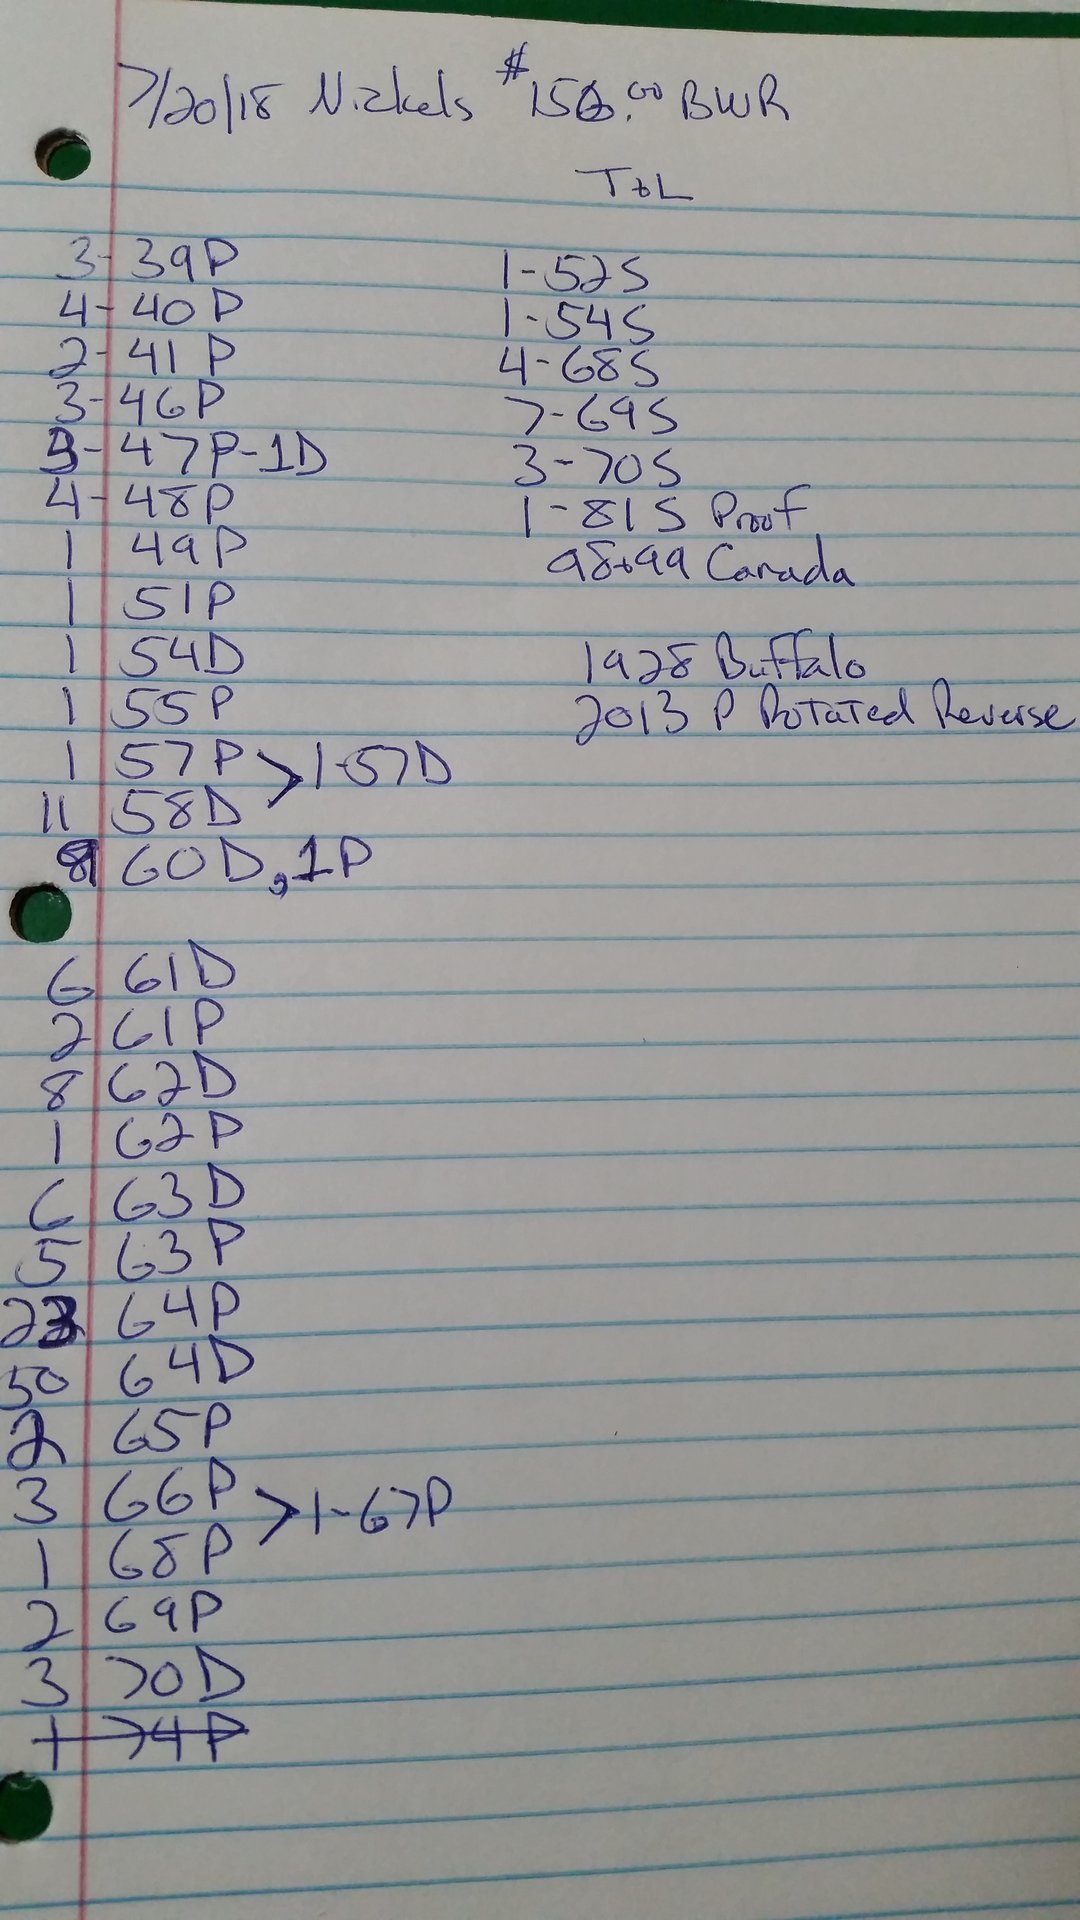 7/20/18 Nickels $150.00 BWR
TtL
3-39P
4-40P
2-41P
3-46P
3-47P-1D
4-48P
1 49P
1 51P
1 54D
1 55P
1 57P > 1-57D
11 58D
60D, 1P
6 61D
2 61P
8 62D
1 62P
6 63D
5 63P
23 64P
50 64D
2 65P
3 66P > 1-67P
1 68P
2 69P
3 70D
1 74P
1-52S
1-54S
4-68S
7-69S
3-70S
1-81S Proof
98+99 Canada
1928 Buffalo
2013 P Rotated Reverse